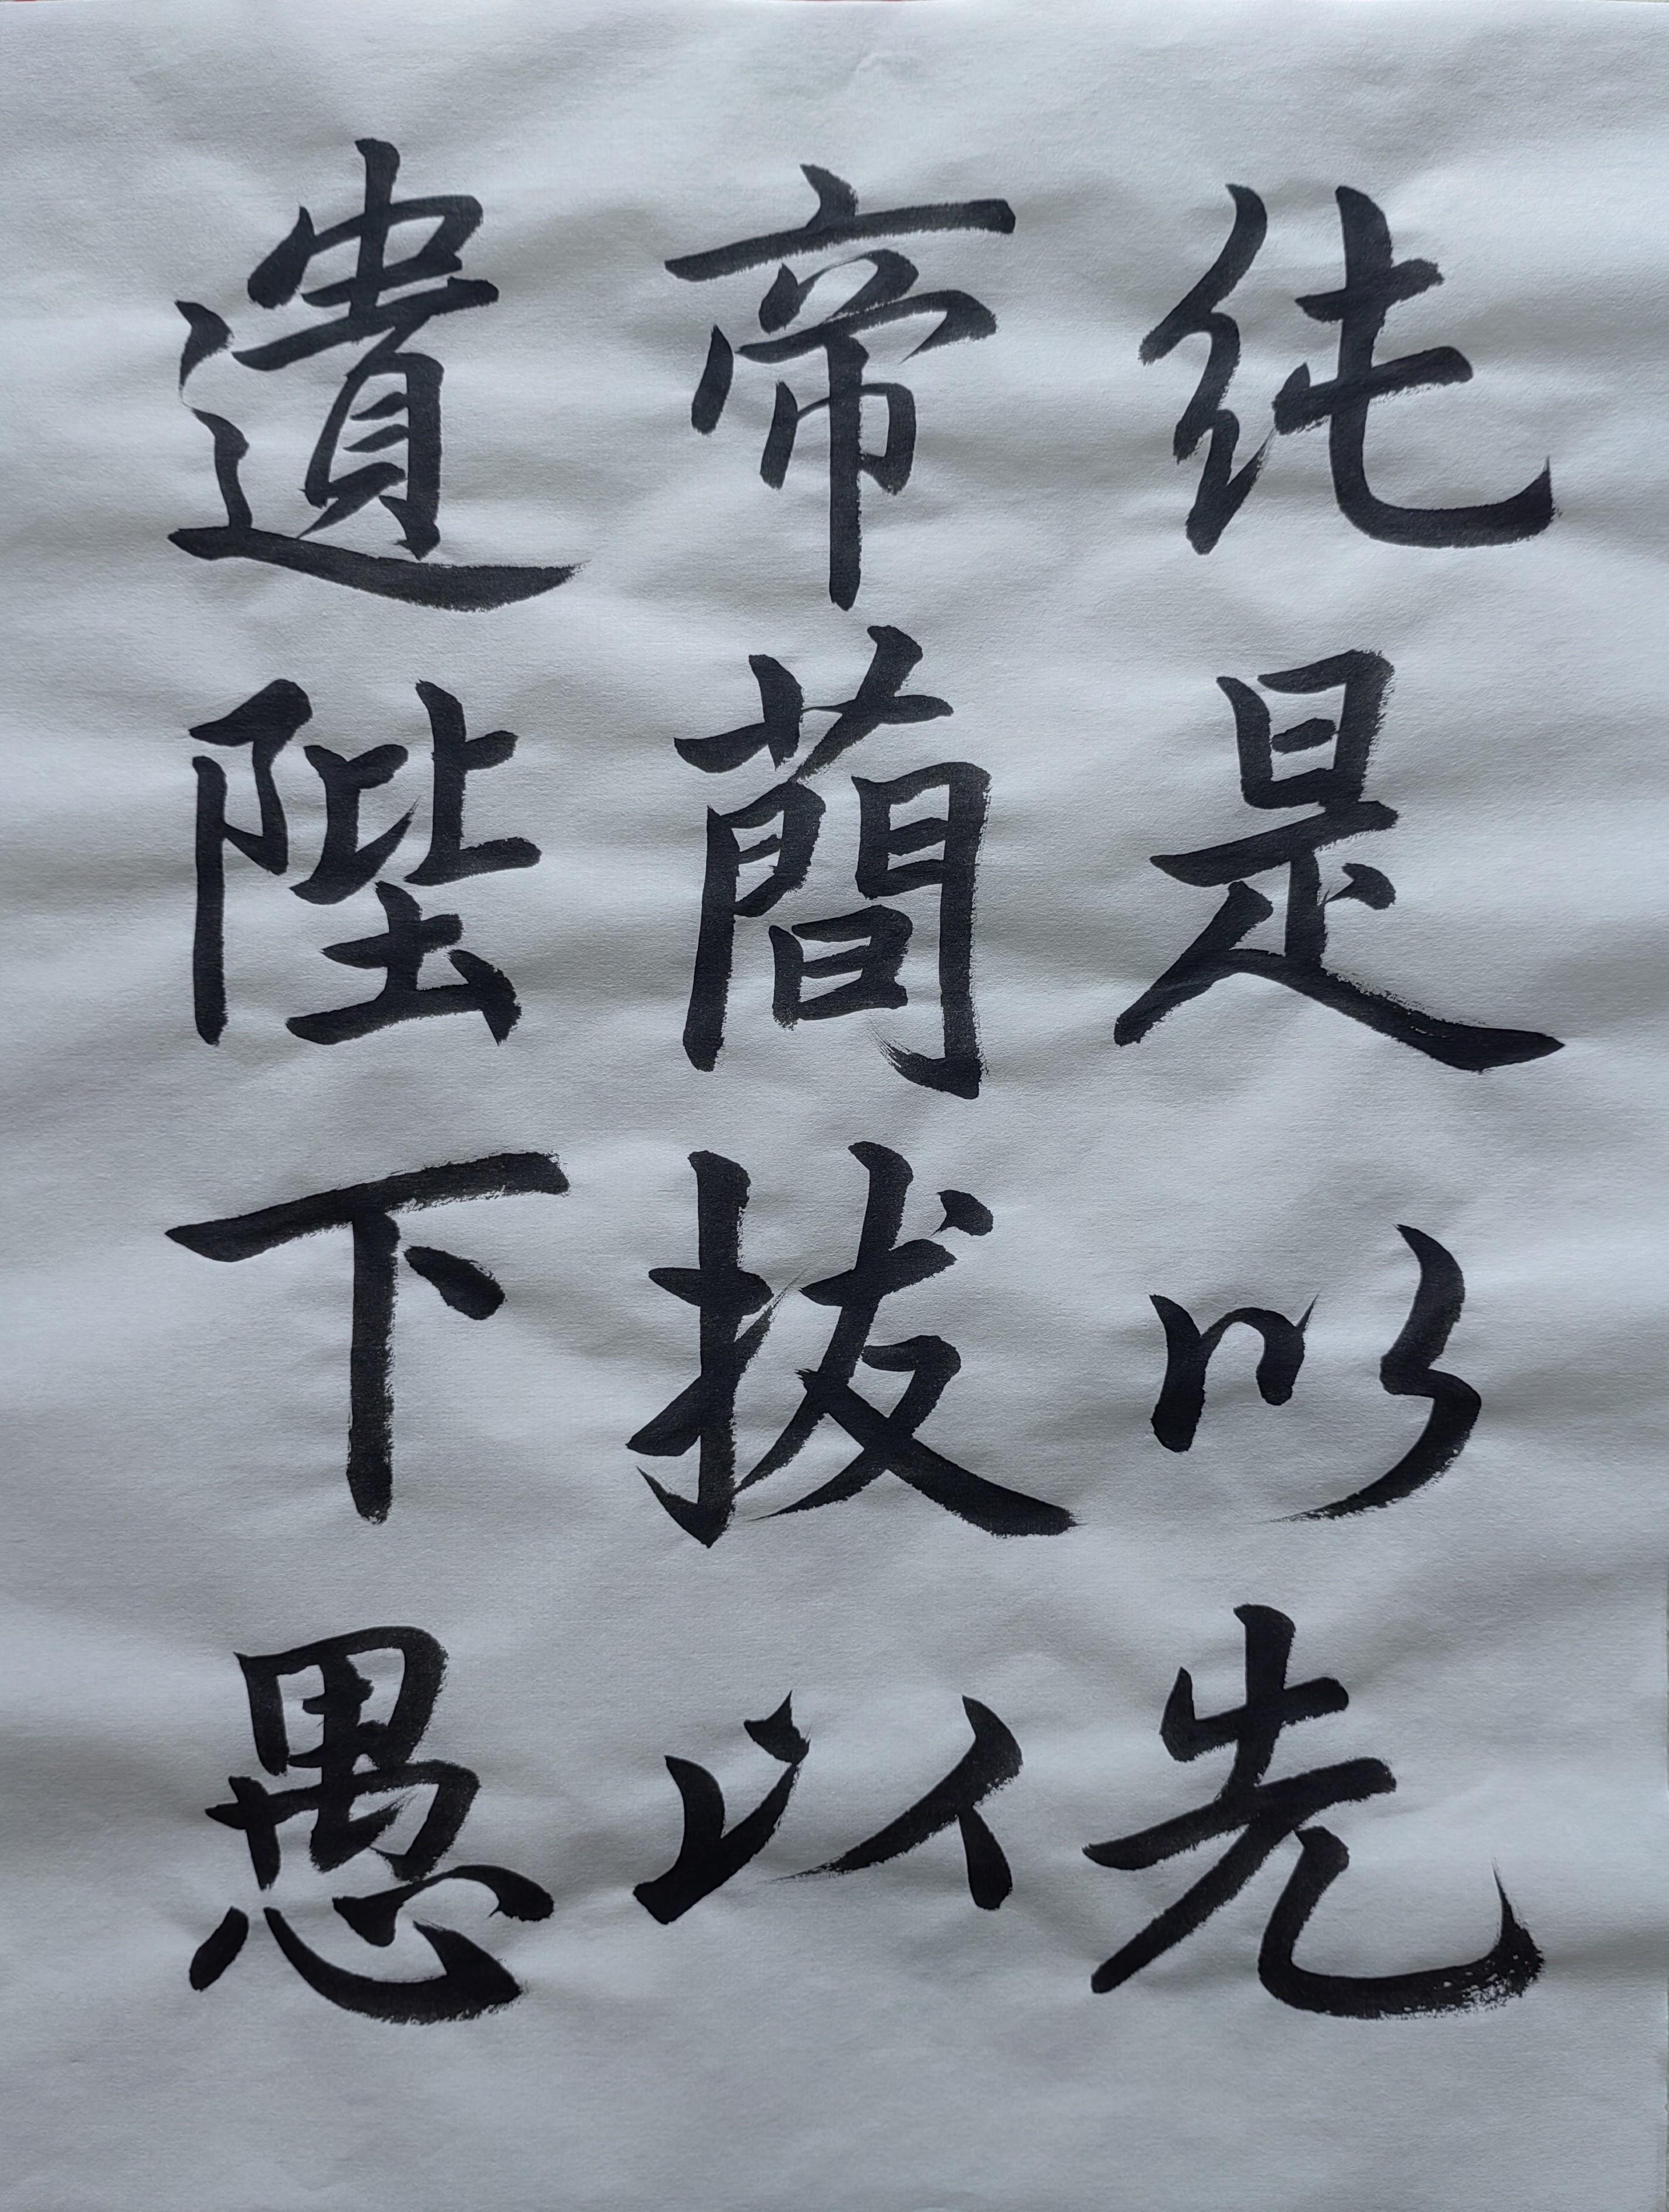 纯是以先
帝蕳拔以
遺陛下愚